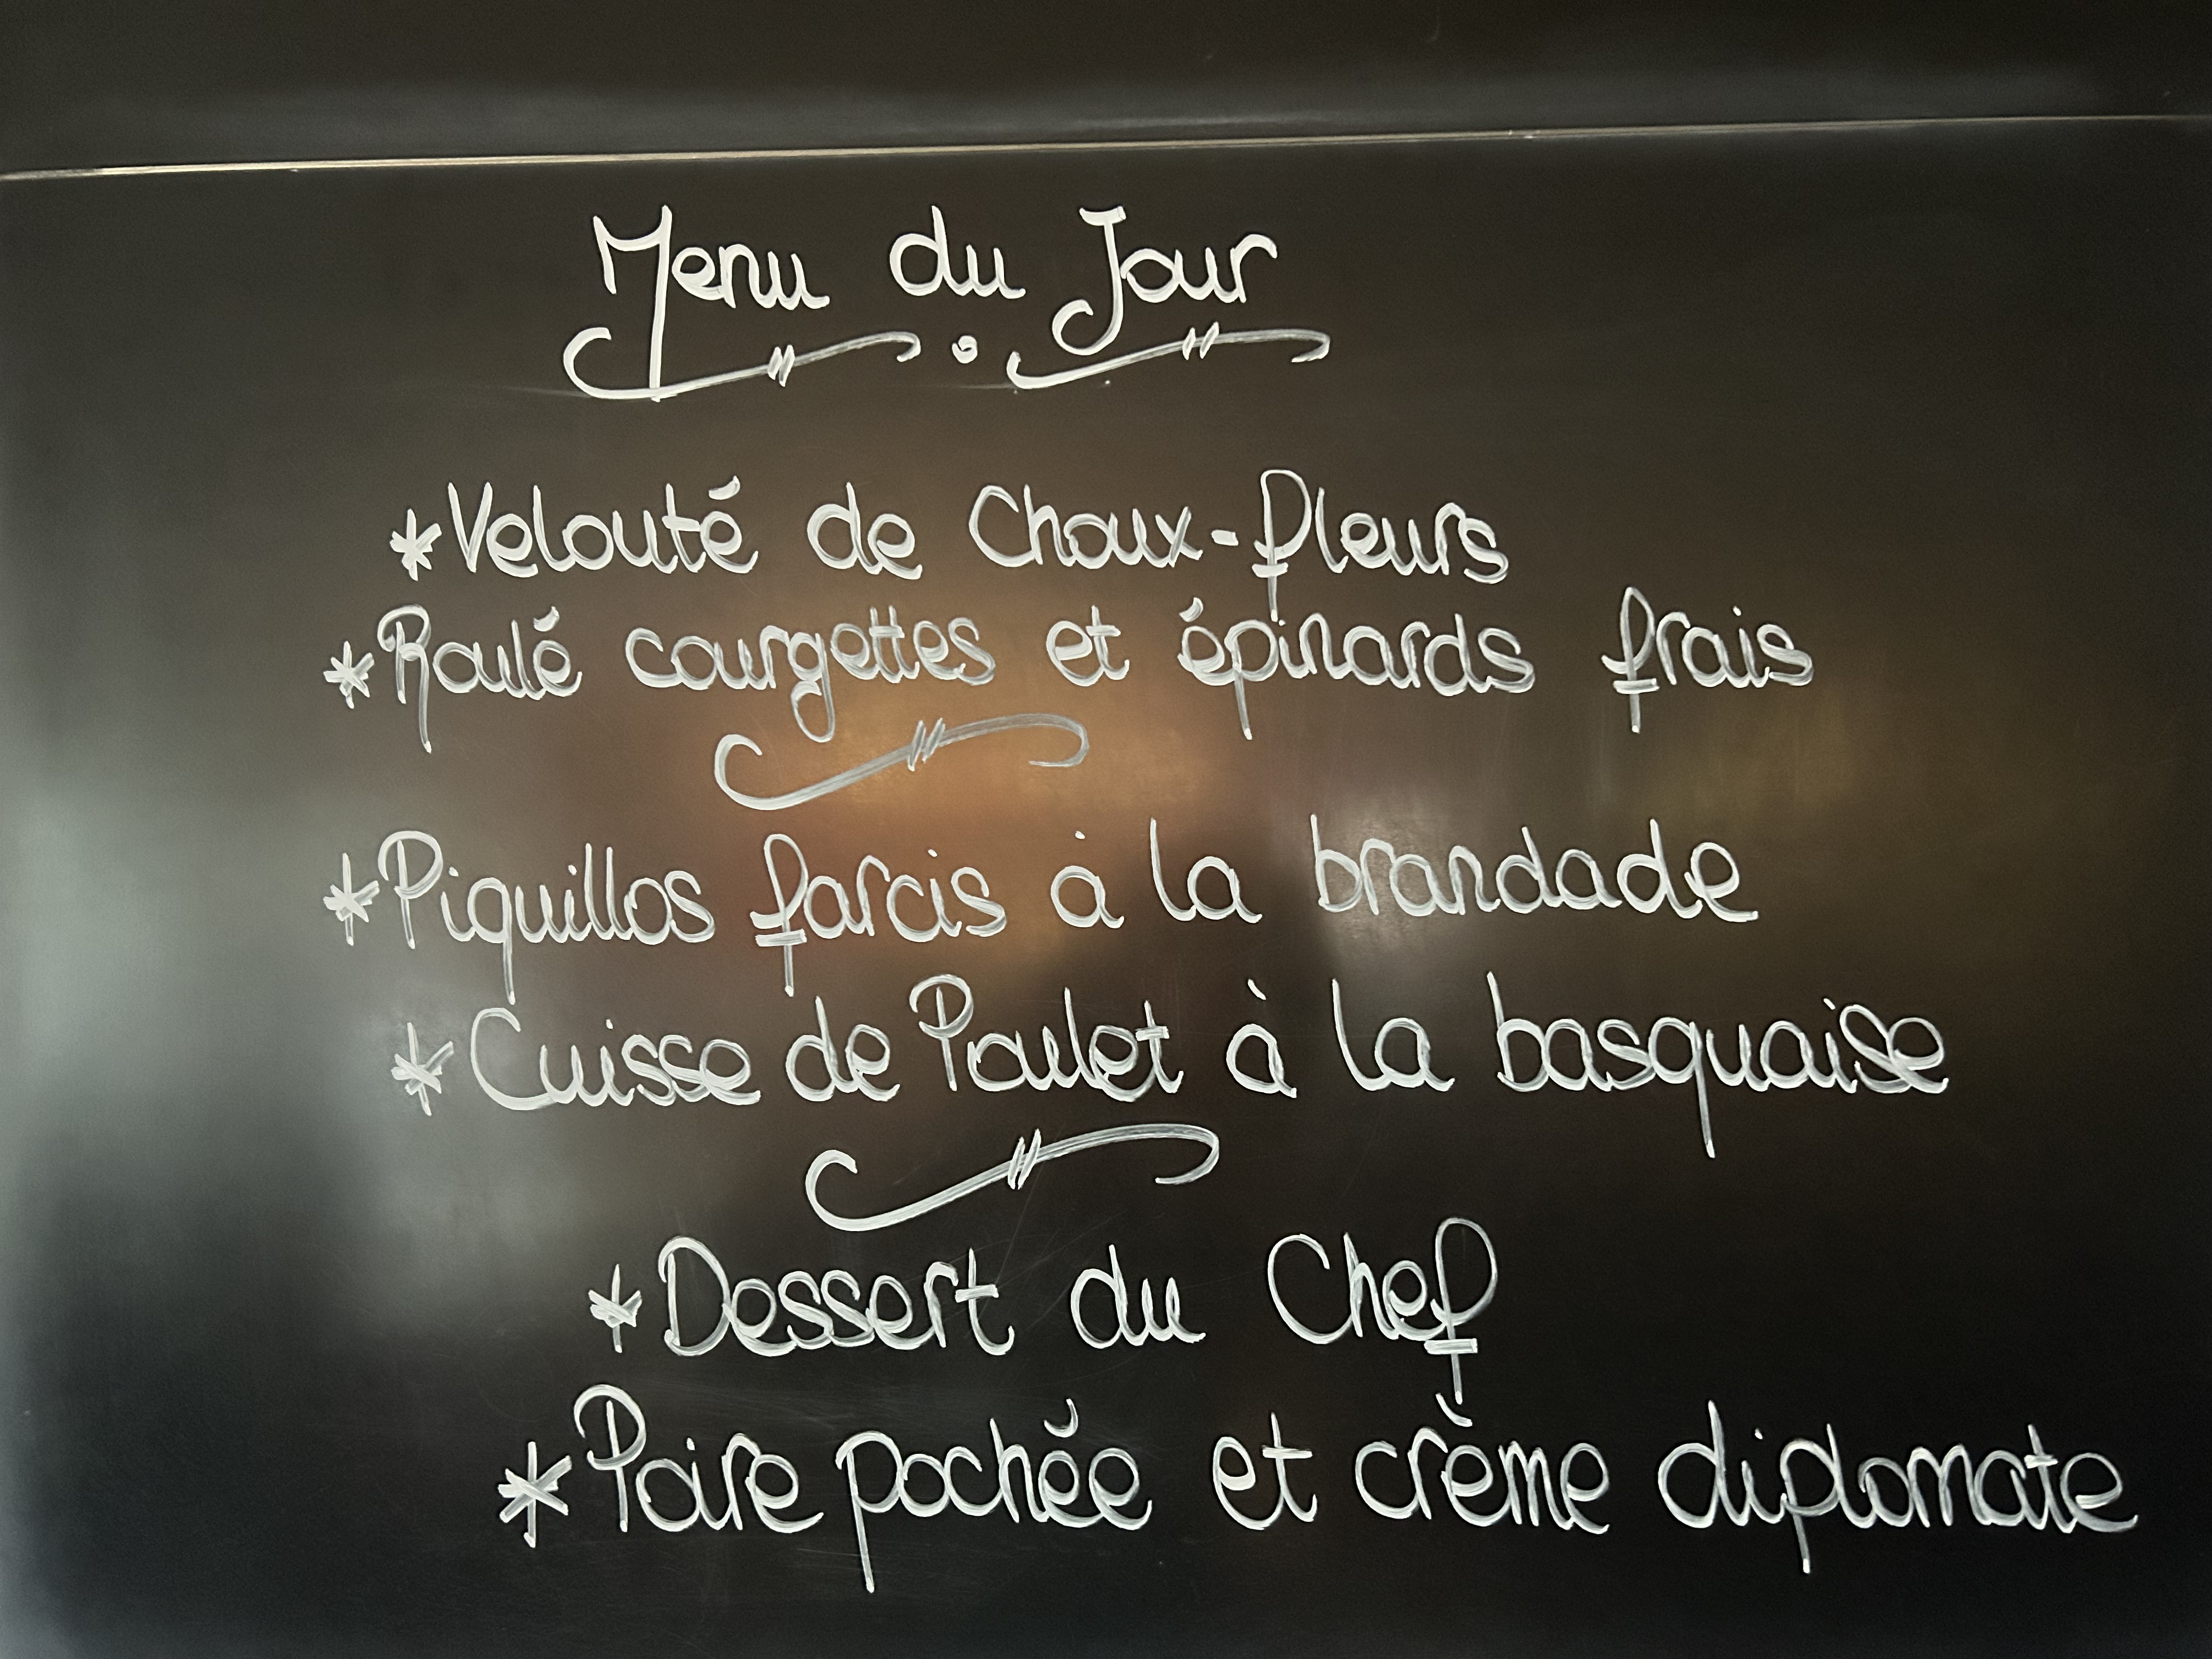 Menu du Jour
*Velouté de Choux-fleurs
*Roulé courgettes et épinards frais
*Piquillos farcis à la brandade
*Cuisse de Poulet à la basquaise
*Dessert du Chef
*Poire pochée et crème diplomate